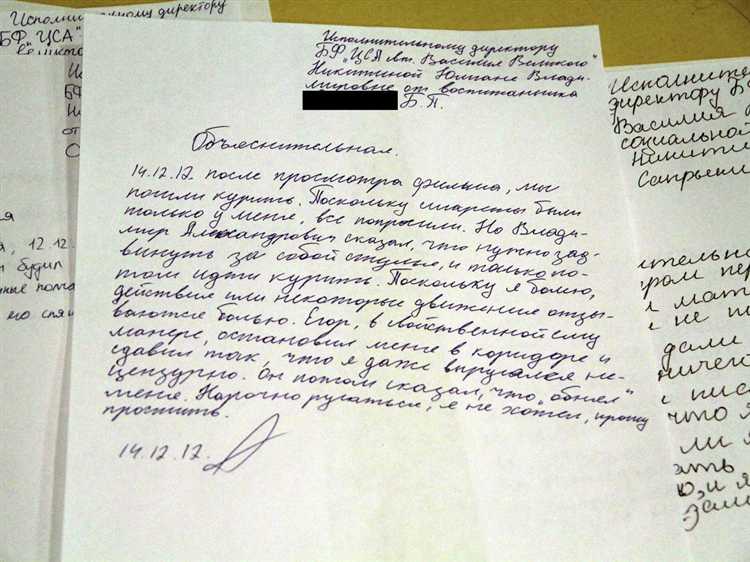 Исполнительному директору
БФ "ЦСА
Исполнительному директору
БФ „ЦСА вт. Василия Великого"
Никитиной Юлиане Влади-
мировне от воспитанника
Б.П.
Объяснительная.
14.12.12. после просмотра фильма, мы
пошли курить. Поскольку сигареты были
только у меня, все попросили. Но Влади-
мир Александрович сказал, что нужно зад-
винуть за собой стулья, и только по-
том идти курить. Поскольку я болею,
действие или некоторые движения отзы-
ваются болью. Егор, в свойственной ему
манере, остановил меня в коридоре и
сдавил так, что я даже выругался не-
цензурно. Он потом сказал, что „обнял"
меня. Нарочно ругаться, я не хотел, прошу
простить.
14.12.12.
, 12.12.
будил
его спя
Исполните
директору Б
Василия
социальной
Никити
Сапрыки
ительно
ром пер
мат
не т
дали
ничег
пис
что я
ли я
ать
ю, и я
зам